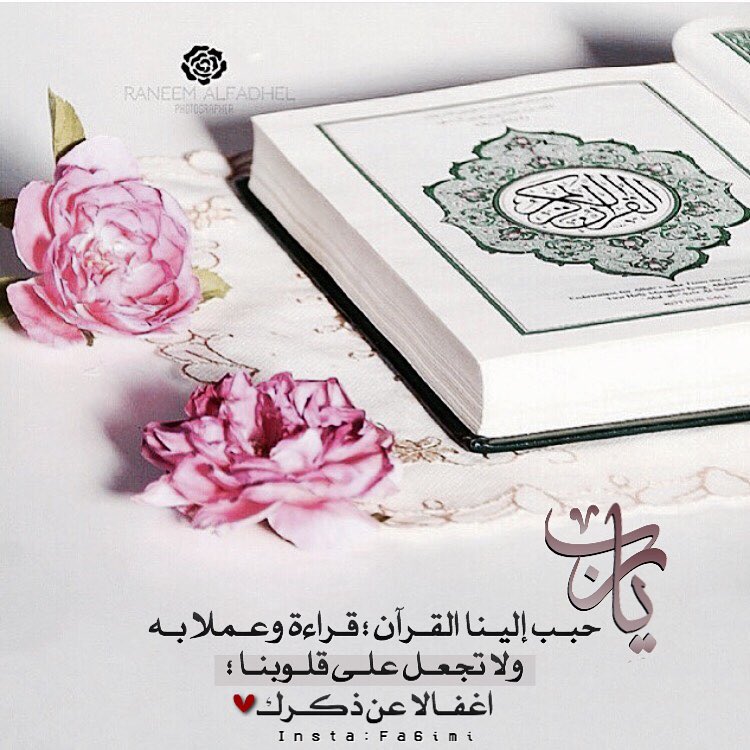 RANEEM ALFADHEL
PHOTOGRAPHER
القرآن الكريم
NOT FOR SALE
يارب
حبب إلينا القرآن ؛ قراءة وعملا به
ولا تجعل على قلوبنا ؛
اغفالا عن ذكرك
Insta:Fa6imi